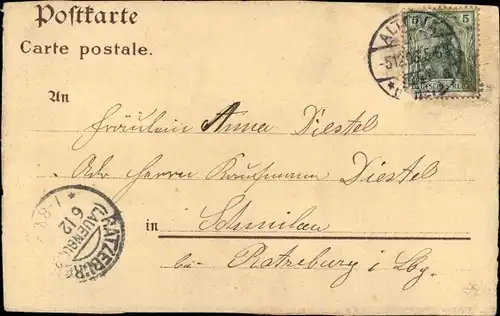 Postkarte
Carte postale.
5 5
An
Fräulein Anna Diestel
Adr Herrn Kaufmann Diestel
in Schmilau
bei Ratzeburg i Lbg.
RATZEBURG
(LAUENBURG)
6 12